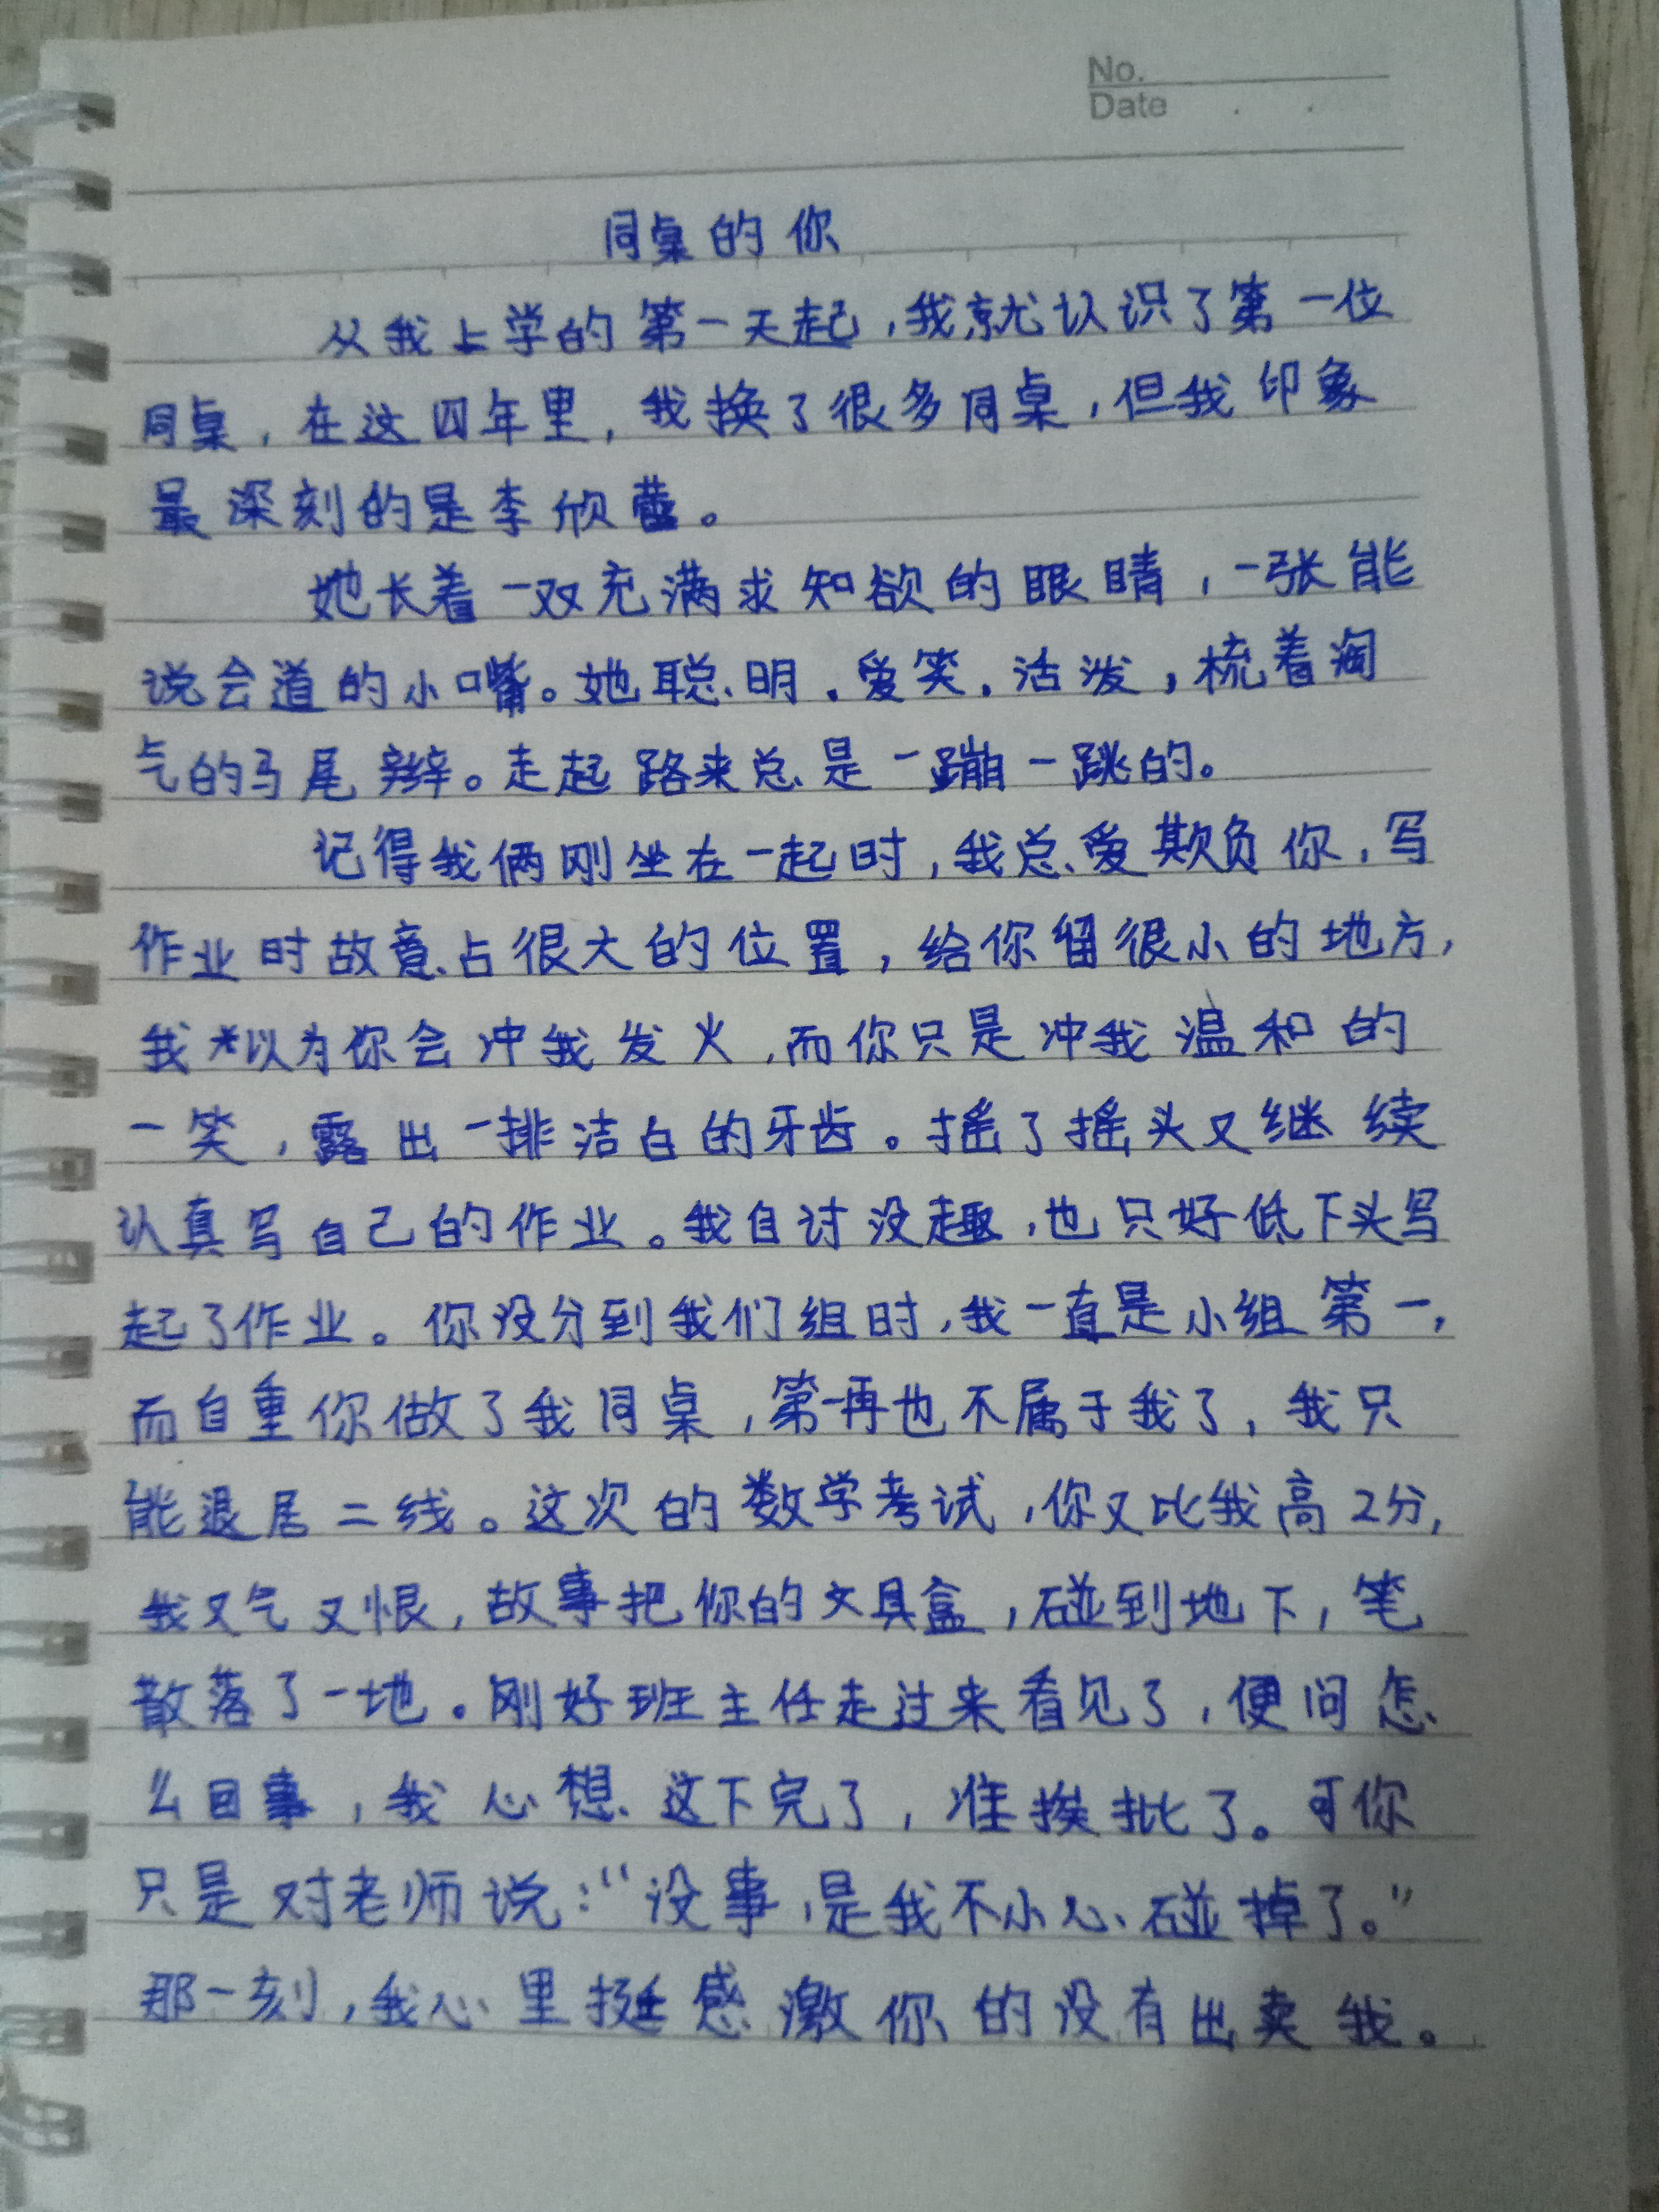 No.
Date
同桌的你
从我上学的第一天起，我就认识了第一位
同桌，在这四年里，我换了很多同桌，但我印象
最深刻的是李欣蕾。
她长着一双充满求知欲的眼睛，一张能
说会道的小嘴。她聪明．爱笑．活泼，梳着淘
气的马尾辫。走起路来总是一蹦一跳的。
记得我俩刚坐在一起时，我总爱欺负你，写
作业时故意占很大的位置，给你留很小的地方，
我以为你会冲我发火，而你只是冲我温和的
一笑，露出一排洁白的牙齿。摇了摇头又继续
认真写自己的作业。我自讨没趣，也只好低下头写
起了作业。你没分到我们组时，我一直是小组第一，
而自重你做了我同桌，第一再也不属于我了，我只
能退居二线。这次的数学考试，你又比我高2分，
我又气又恨，故事把你的文具盒，碰到地下，笔
散落了一地。刚好班主任走过来看见了，便问怎
么回事，我心想这下完了，准挨批了。可你
只是对老师说：“没事，是我不小心碰掉了。”
那一刻，我心里挺感激你的没有出卖我。